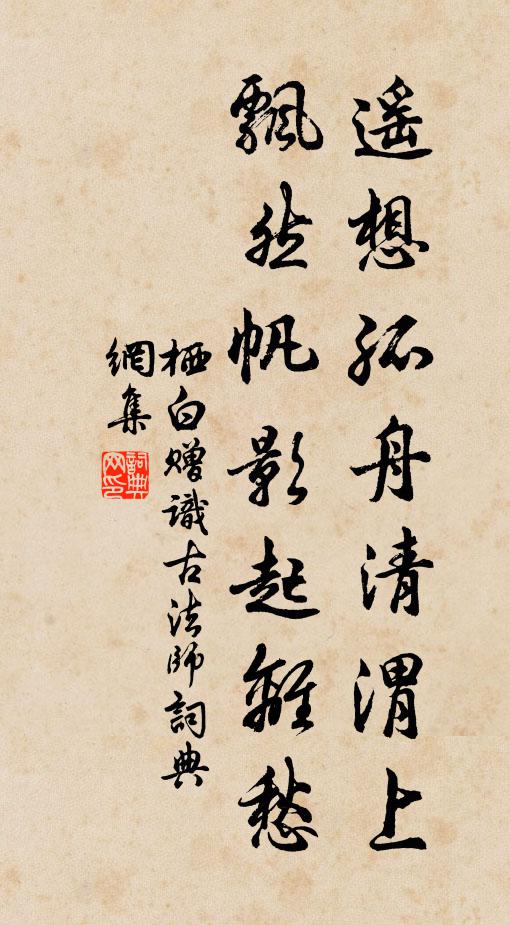 遥想孤舟清渭上
飘然帆影起離愁
栖白赠識古法師詞典
網集
詞典
网印